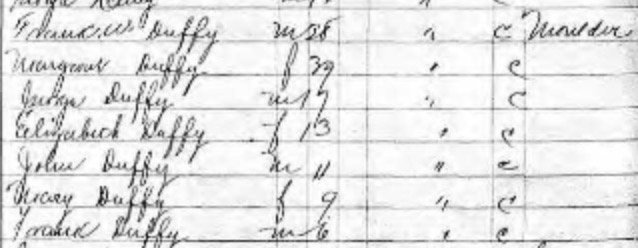 Kelly
Frank W Duffy m 38 " C Moulder
Margaret Duffy f 39 " C
Duffy m 17 " C
Elizabeth Duffy f 13 " C
John Duffy m 11 " C
Mary Duffy f 9 " C
Frank Duffy m 6 " C